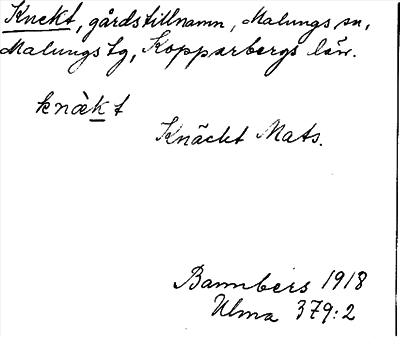 Knekt, gårdstillnamn, Malungs sn,
Malungs tg, Kopparbergs län.
knæ̀kt
Knäckt Mats.
Bannbers 1918
Ulma 379:2